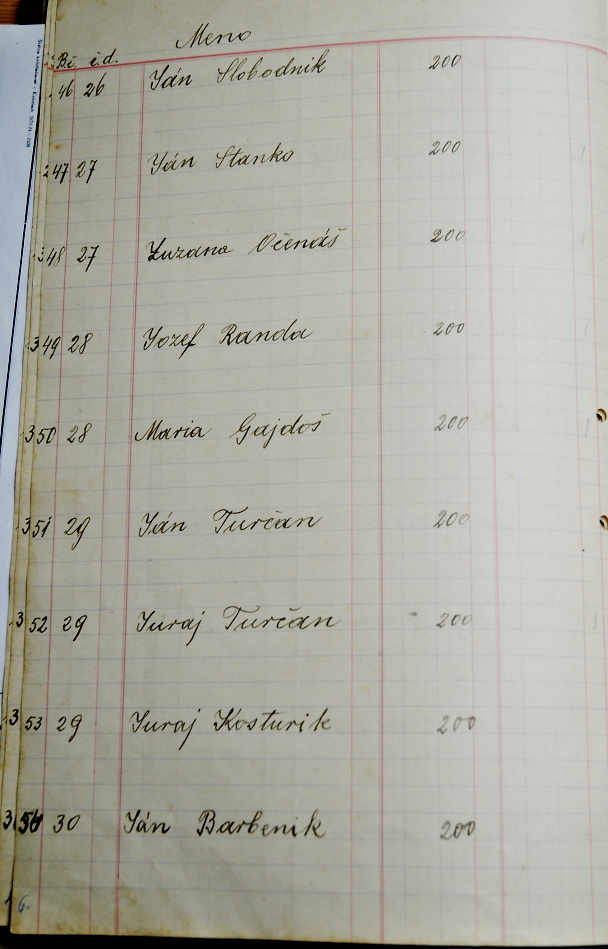 Meno
B.č. č.d.
46 26 Ján Slobodnik 200
347 27 Ján Stanko 200
348 27 Zuzana Očenáš 200
349 28 Jozef Randa 200
350 28 Maria Gajdoš 200
351 29 Ján Turčan 200
352 29 Juraj Turčan 200
353 29 Juraj Kosturik 200
354 30 Ján Barbenik 200
6.